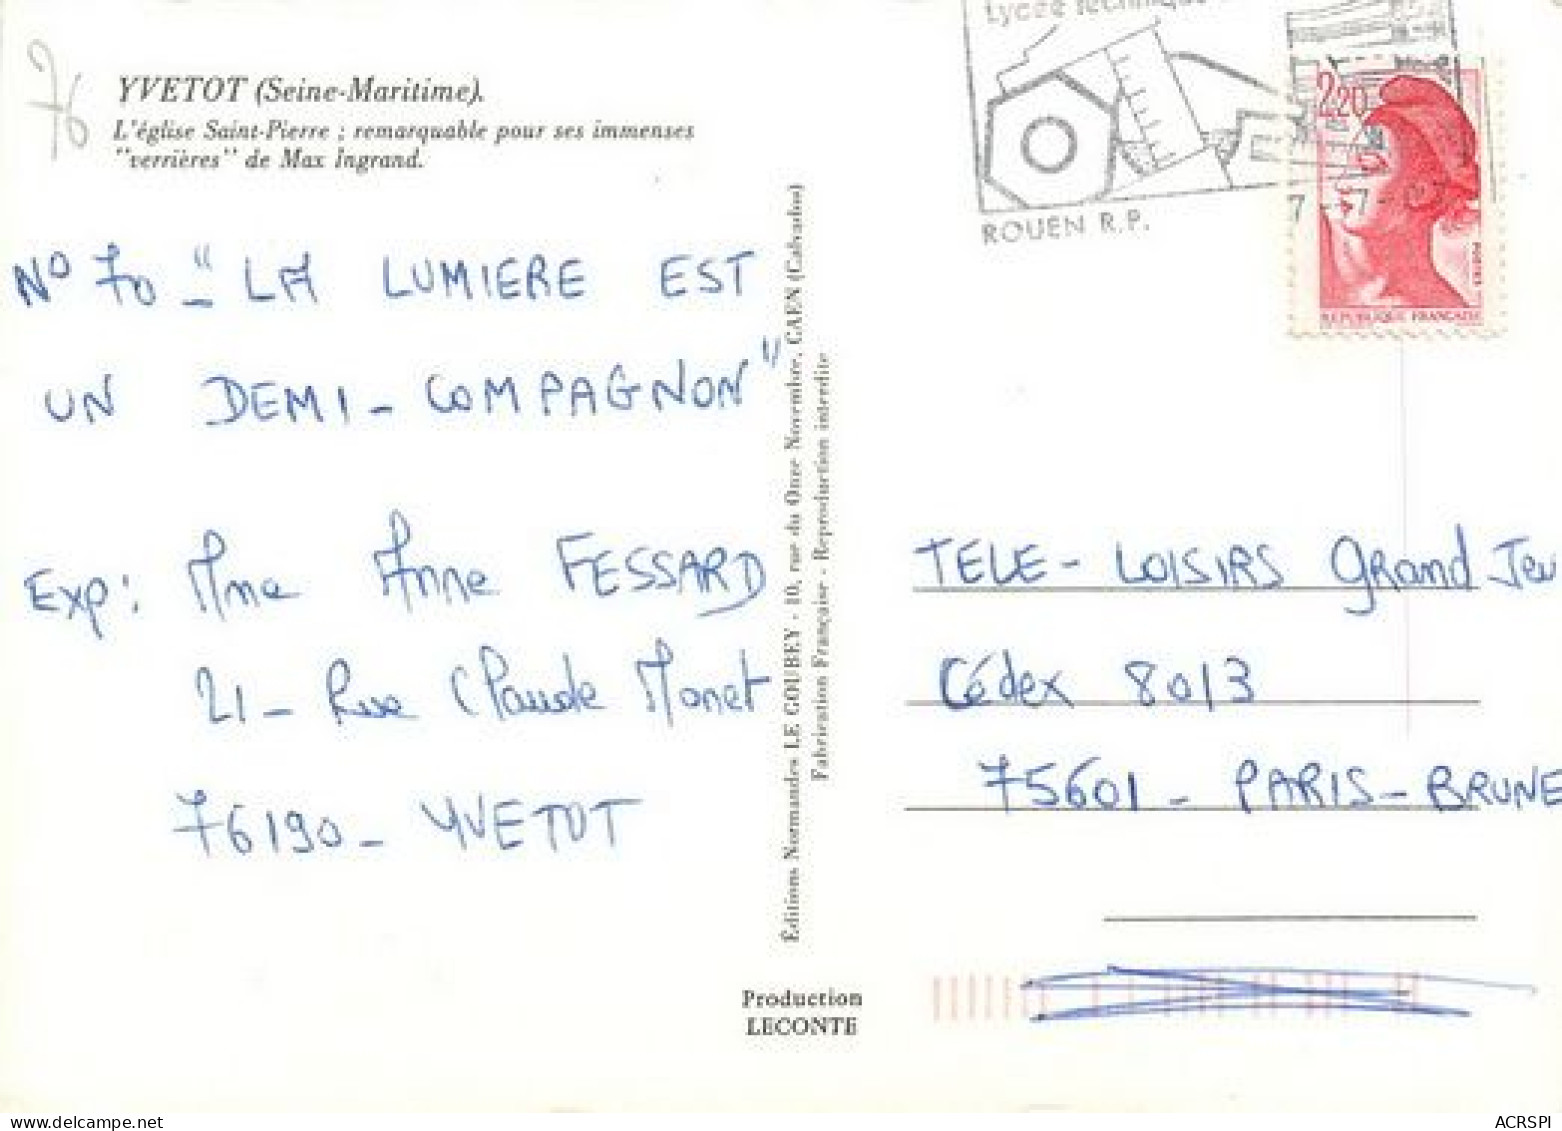 76
YVETOT (Seine-Maritime).
L'église Saint-Pierre ; remarquable pour ses immenses
"verrières" de Max Ingrand.
N° 70 - "LA LUMIERE EST
UN DEMI - COMPAGNON"
Exp: Mme Anne FESSARD
21 - Rue Claude Monet
76190 - YVETOT
Éditions Normandes LE GOUBEY - 10, rue du Onze Novembre, CAEN (Calvados)
Fabrication Française - Reproduction interdite
Production
LECONTE
Lycée Technique
ROUEN R.P.
7 -7-
2,20
POSTES
REPUBLIQUE FRANÇAISE
TELE - LOISIRS Grand Jeu
Cédex 8013
75601 - PARIS - BRUNE
ACRSPI